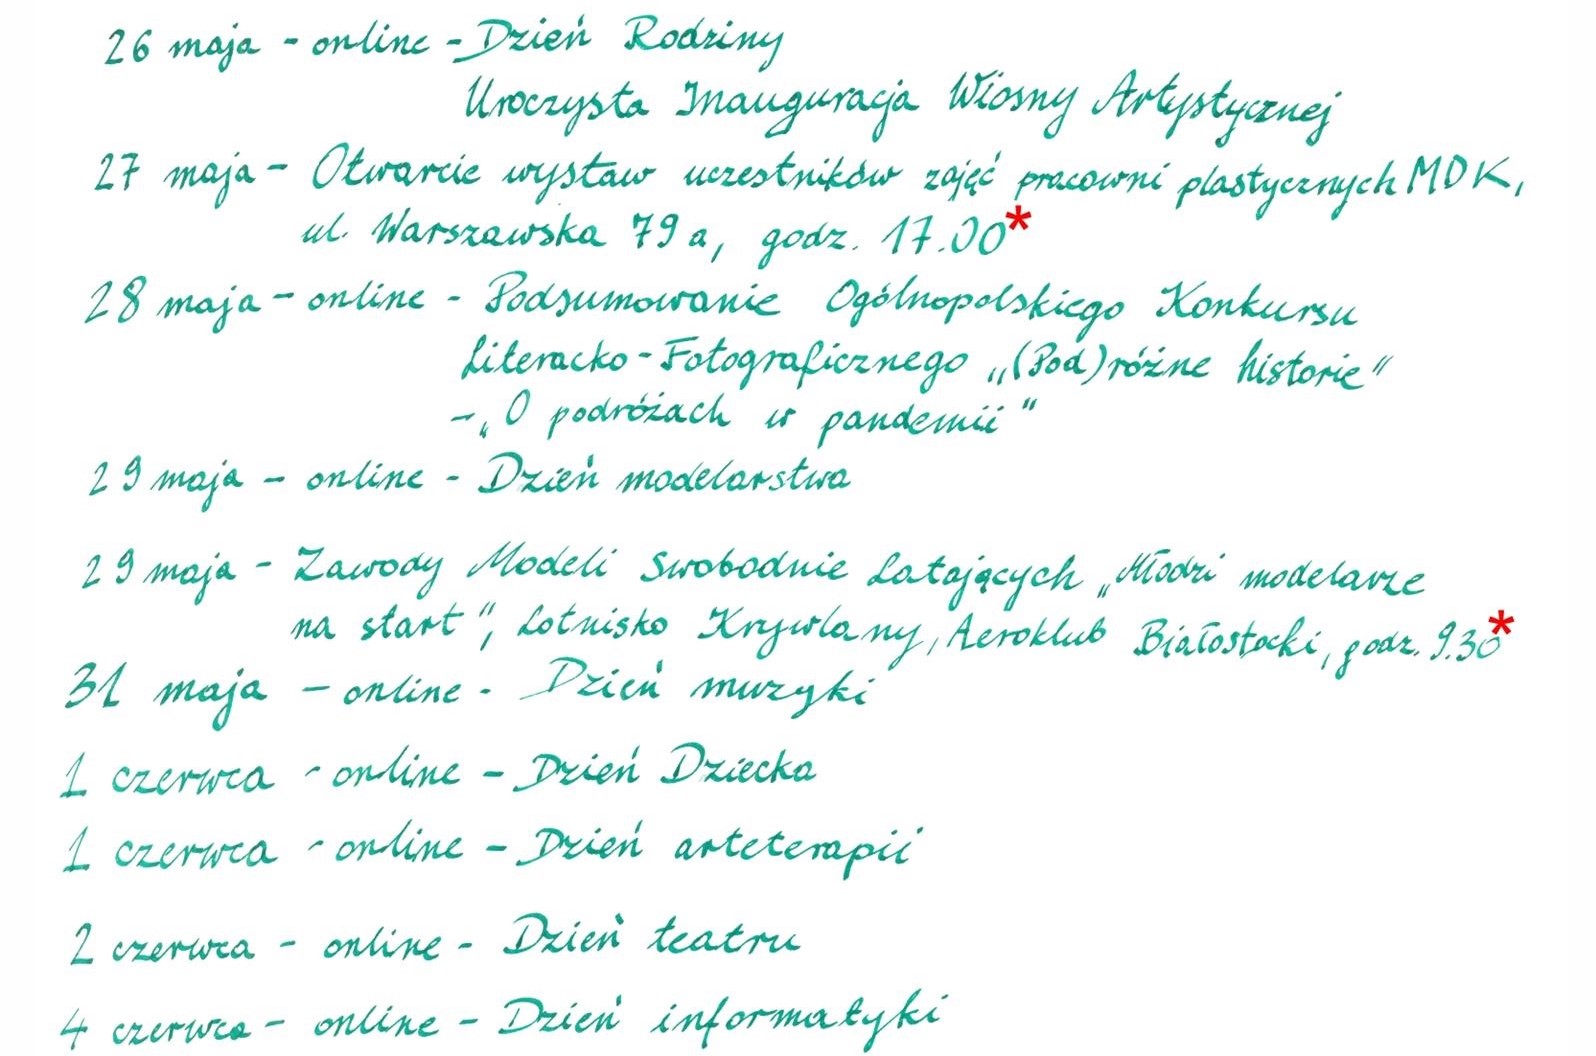 26 maja - online - Dzień Rodziny
Uroczysta Inauguracja Wiosny Artystycznej
27 maja - Otwarcie wystaw uczestników zajęć pracowni plastycznych MDK,
ul. Warszawska 79a, godz. 17.00*
28 maja - online - Podsumowanie Ogólnopolskiego Konkursu
Literacko-Fotograficznego „(Pod)różne historie"
- „O podróżach w pandemii"
29 maja - online - Dzień modelarstwa
29 maja - Zawody Modeli Swobodnie Latających „Młodzi modelarze
na start", Lotnisko Krywlany, Aeroklub Białostocki, godz. 9.30*
31 maja - online - Dzień muzyki
1 czerwca - online - Dzień Dziecka
1 czerwca - online - Dzień arteterapii
2 czerwca - online - Dzień teatru
4 czerwca - online - Dzień informatyki